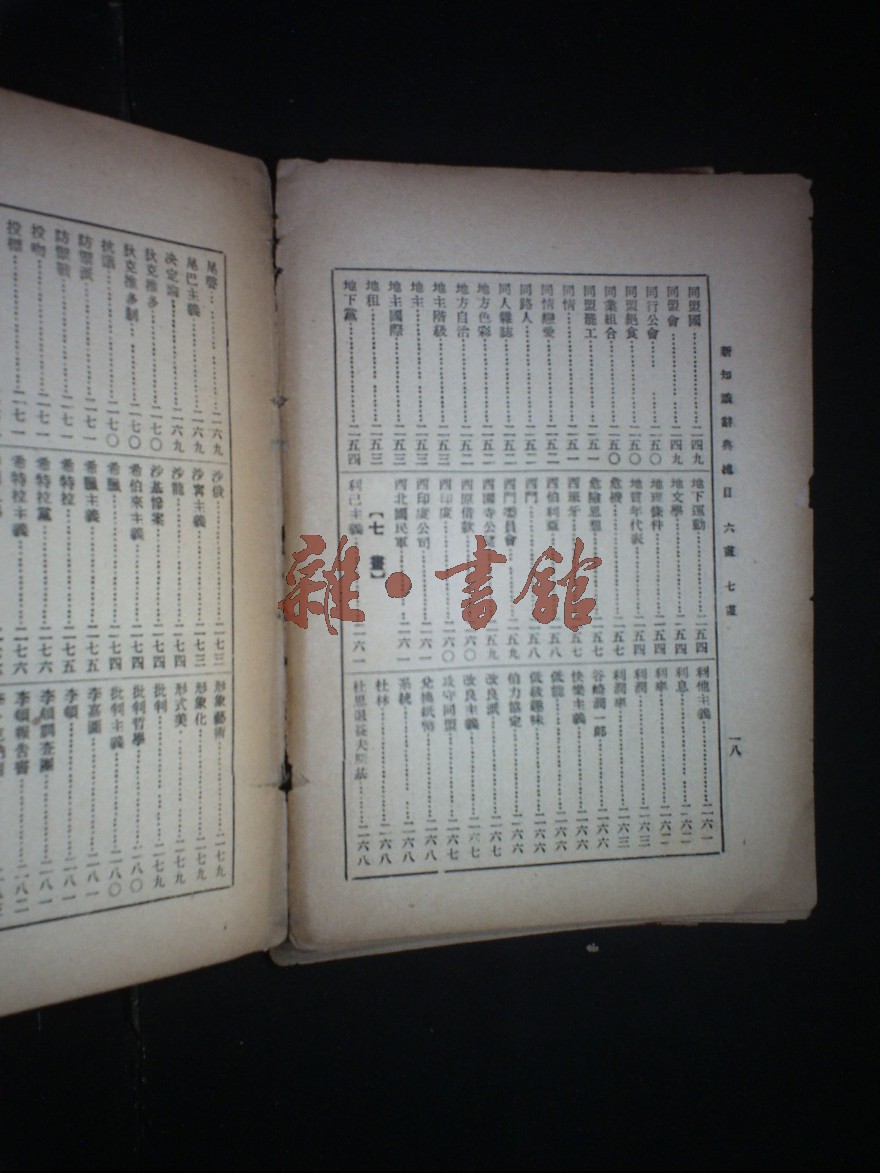 新知識辭典總目 六畫 七畫
一八
同盟國 二四九
同盟會 二四九
同行公會 二五〇
同盟絕食 二五〇
同業組合 二五〇
同盟罷工 二五一
同情 二五一
同情戀愛 二五二
同路人 二五二
同人雜誌 二五二
地方色彩 二五二
地方自治 二五三
地主階級 二五三
地主 二五三
地主國際 二五三
地租 二五三
地下黨 二五四
地下運動 二五四
地文學 二五四
地理條件 二五四
地質年代表 二五五
危機 二五七
危險思想 二五七
西班牙 二五七
西伯利亞 二五八
西門 二五八
西門委員會 二五九
西園寺公望 二五九
西原借款 二六〇
西印度 二六〇
西印度公司 二六一
西北國民軍 二六一
【七畫】
利己主義 二六一
利他主義 二六一
利息 二六二
利率
利潤 二六三
利潤率 二六三
谷崎潤一郎 二六六
快樂主義 二六六
低能 二六六
低級趣味 二六六
伯力協定 二六六
改良派 二六七
改良主義 二六七
攻守同盟 二六七
兌換紙幣 二六八
系統 二六八
杜林 二六八
杜思退益夫斯基 二六八
尾聲 二六九
尾巴主義 二六九
決定論 二六九
狄克推多 二七〇
狄克推多制 二七〇
抗議 二七一
防禦派 二七一
防禦戰 二七一
投吻 二七一
投標 二七一
沙俄 二七三
沙寧主義 二七三
沙龍 二七四
沙基慘案 二七四
希伯來主義 二七四
希臘 二七四
希臘主義 二七五
希特拉 二七五
希特拉黨 二七六
希特拉主義 二七六
形象藝術 二七九
形象化 二七九
形式美 二七九
批判 二七九
批判哲學 二八〇
批判主義 二八〇
李嘉圖 二八一
李頓 二八一
李頓調查團 二八一
李頓報告書 二八二
雜·書館